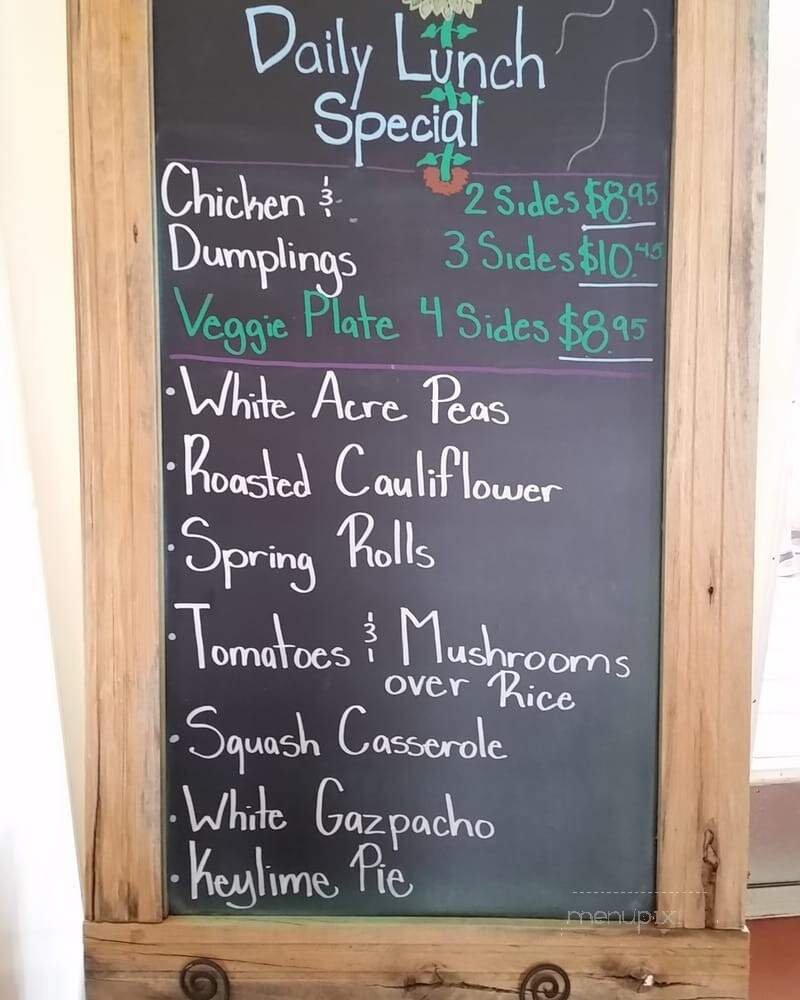 Daily Lunch
Special
Chicken & 2 Sides $8.95
Dumplings 3 Sides $10.45
Veggie Plate 4 Sides $8.95
• White Acre Peas
• Roasted Cauliflower
• Spring Rolls
• Tomatoes & Mushrooms
over Rice
• Squash Casserole
• White Gazpacho
• Keylime Pie
menupix